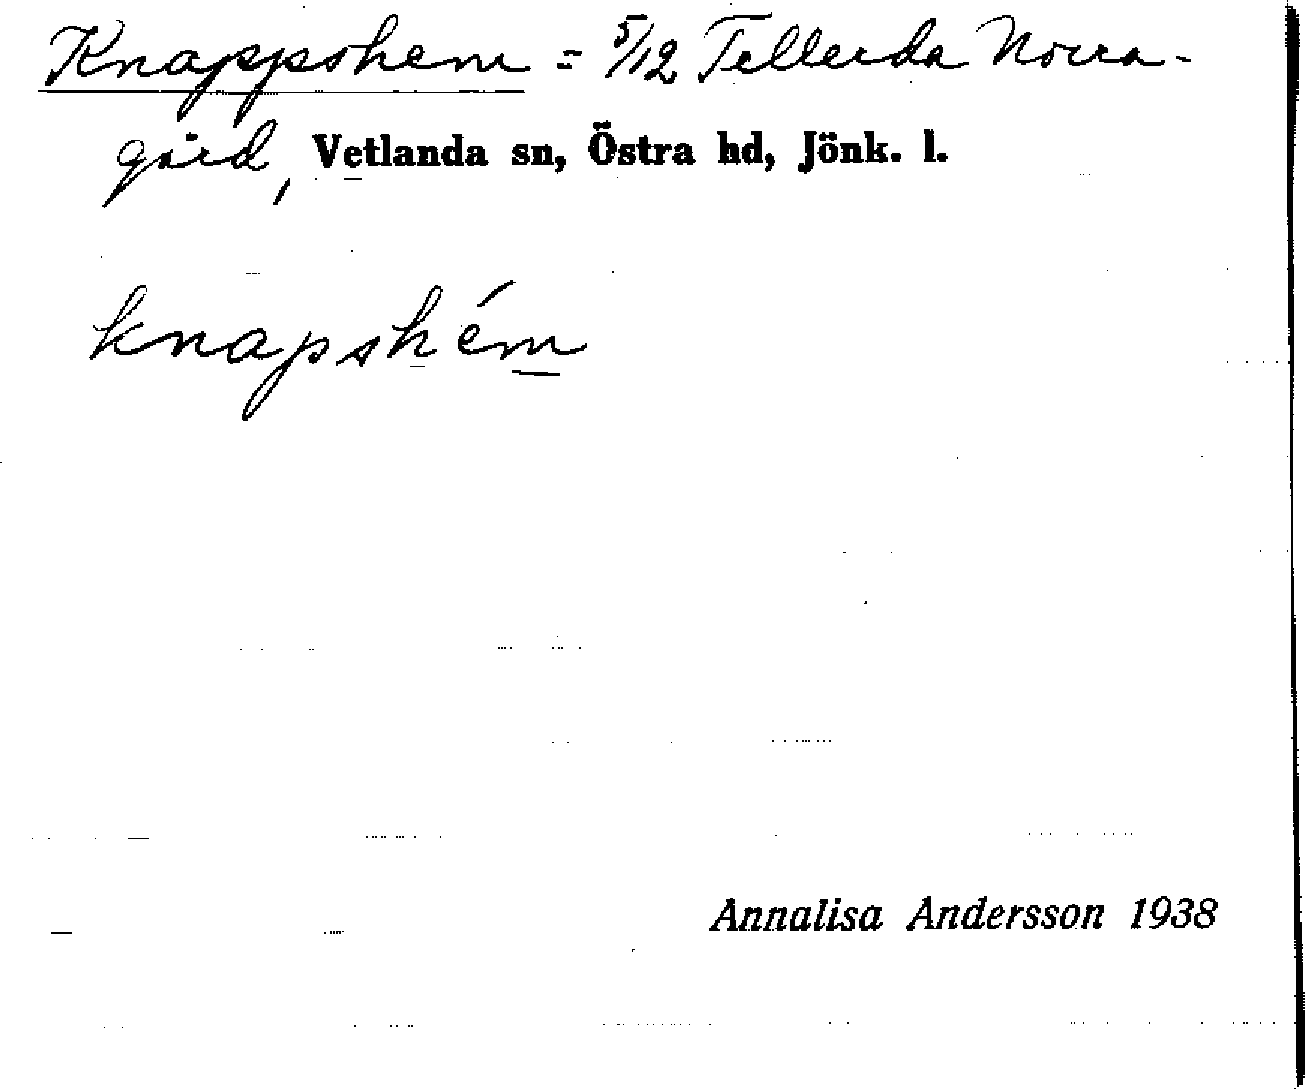 Knappshem = 5/12 Tellerda Norra-
gård, Vetlanda sn, Östra hd, Jönk. l.
knapshém
Annalisa Andersson 1938